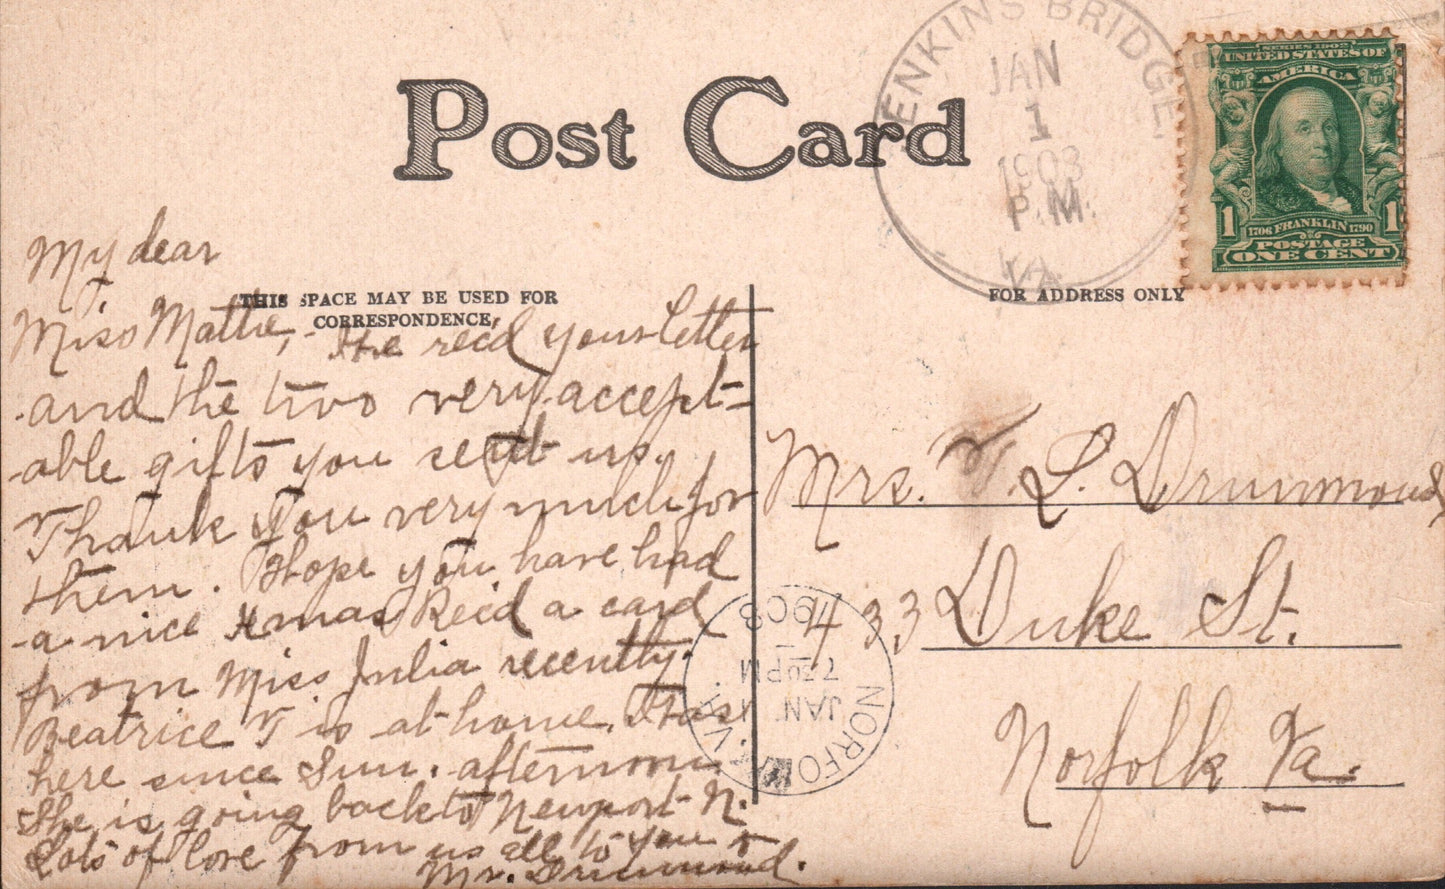 Post Card
JENKINS BRIDGE
JAN
1
1908
P.M.
VA.
SERIES 1902
UNITED STATES OF
AMERICA
1 1
1706 FRANKLIN 1790
POSTAGE
ONE CENT
THIS SPACE MAY BE USED FOR
CORRESPONDENCE
FOR ADDRESS ONLY
My dear
Miss Mattie, - We rec'd your letter
and the two very accept-
able gifts you sent us.
Thank you very much for
them. I hope you have had
a nice Xmas. Rec'd a card
from Miss Julia recently.
Beatrice T is at home. Has
here since Sun. afternoon.
She is going back to Newport N.
Lots of love from us all to you &
Mr. Drummond.
Mrs. T. L. Drummond
433 Duke St.
Norfolk Va.
NORFOLK, VA.
JAN 1
7 30 PM
1908